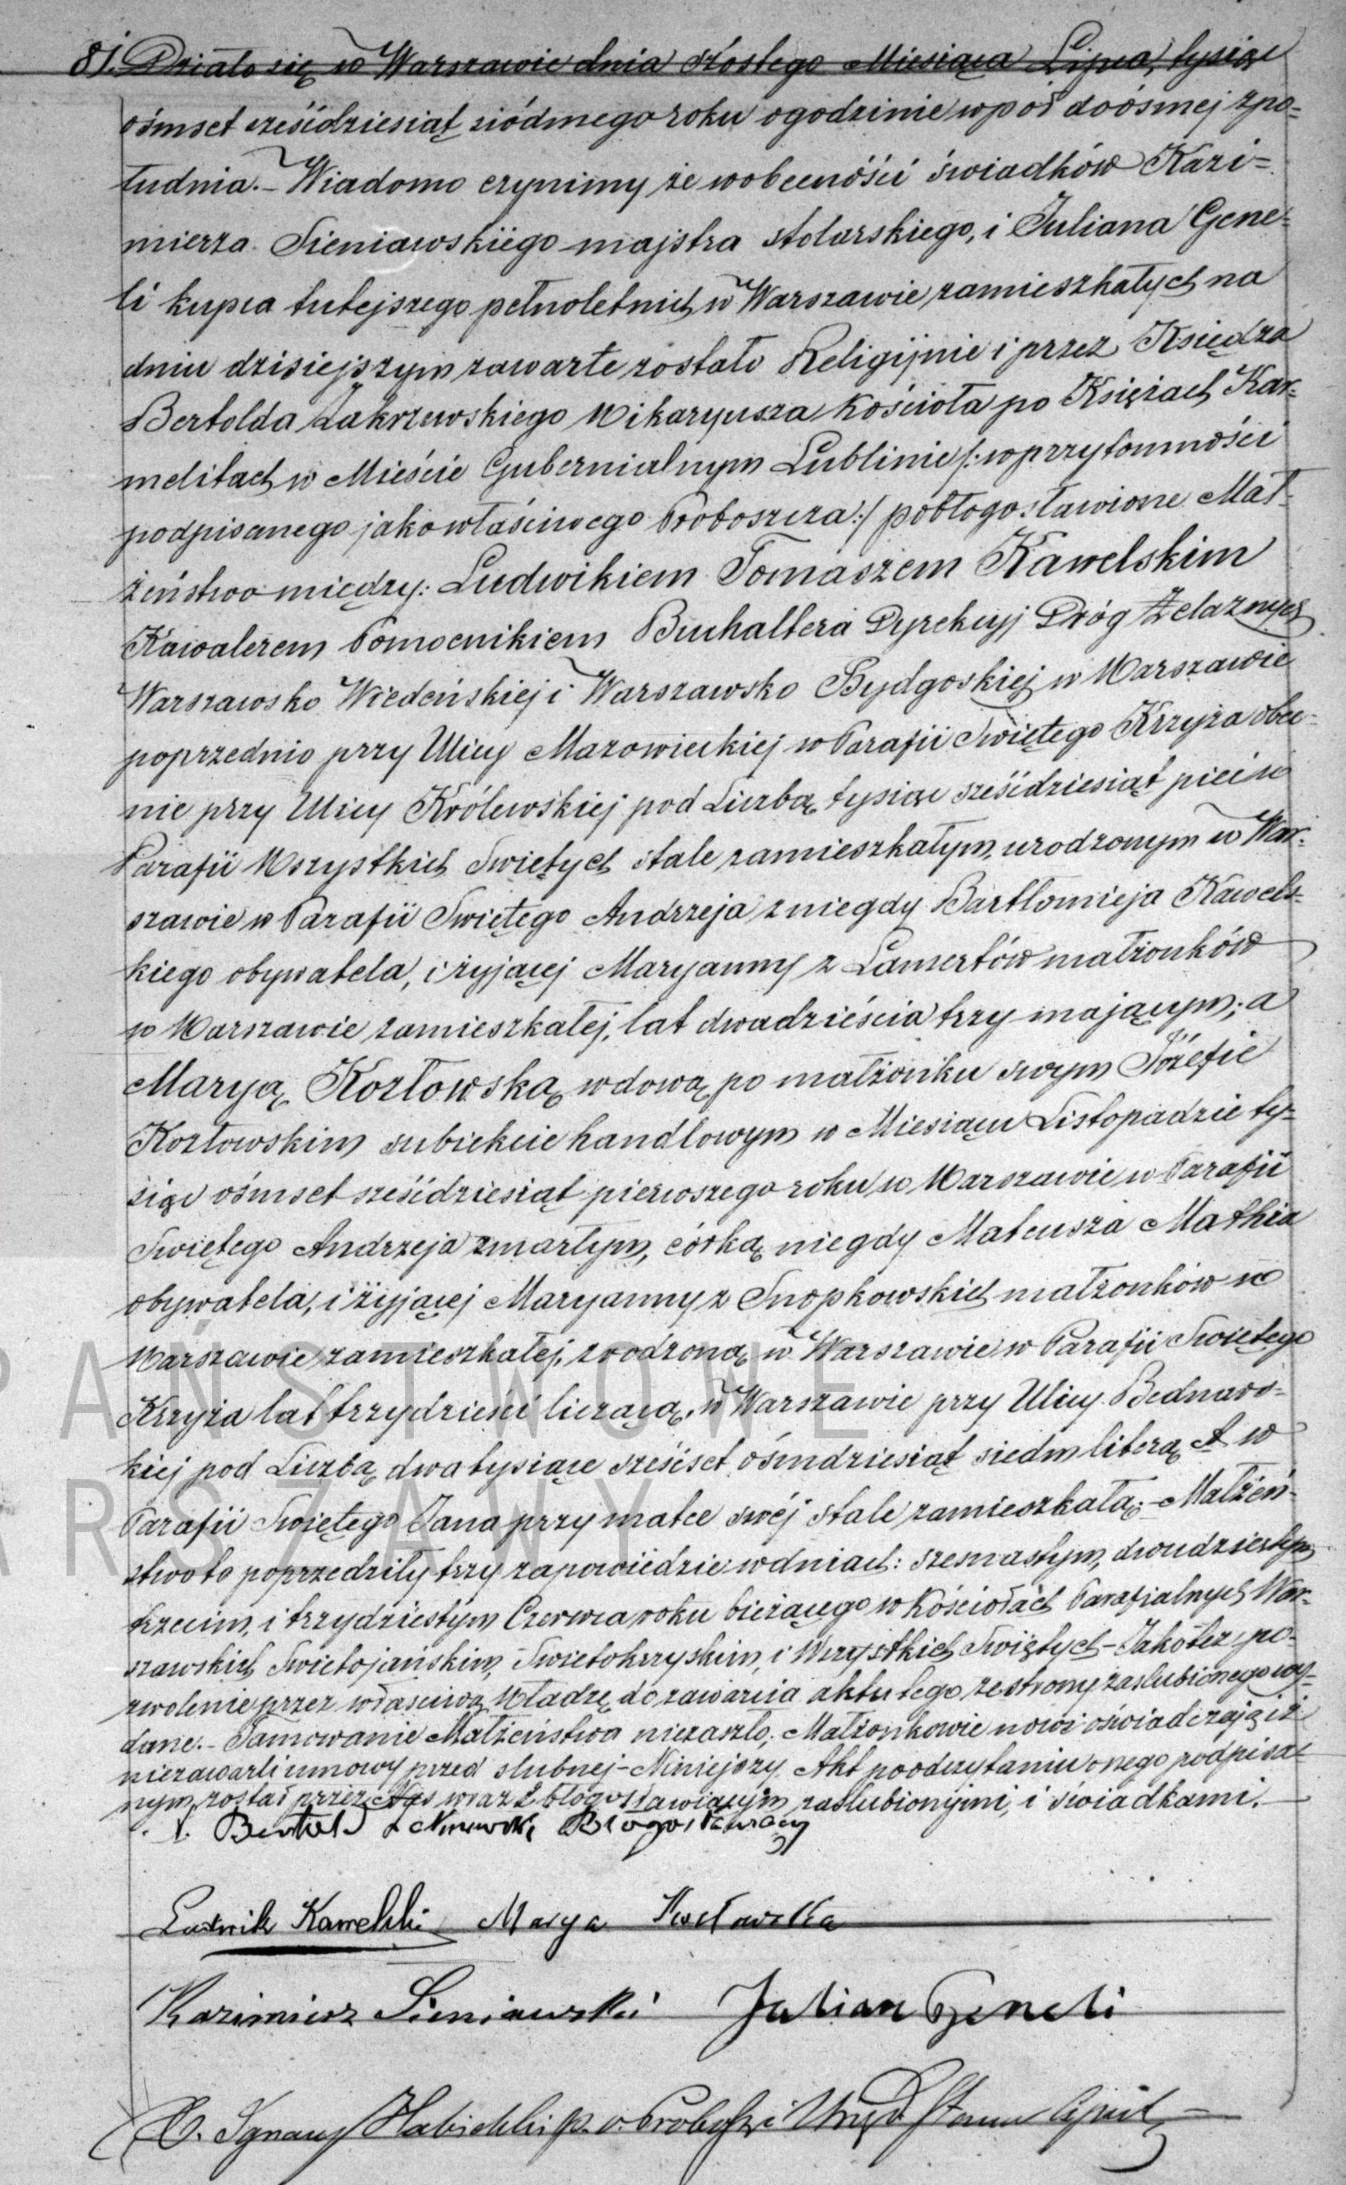 81. Działo się w Warszawie dnia szóstego Miesiąca Lipca, tysiąc
ośmset sześćdziesiąt siódmego roku o godzinie w pół do ósmej z po-
łudnia. – Wiadomo czynimy że w obecności świadków Kazi-
mierza Sieniawskiego majstra stolarskiego, i Juliana Gene-
li kupca tutejszego pełnoletnich w Warszawie zamieszkałych na
dniu dzisiejszym zawarte zostało Religijnie i przez Księdza
Bertolda Zakrzewskiego Wikaryusza Kościoła po Księżach Kar-
melitach w Mieście Gubernialnym Lublinie /: w przytomności
podpisanego jako właściwego Proboszcza :/ pobłogosławione Mał-
żeństwo między: Ludwikiem Tomaszem Kawelskim
Kawalerem Pomocnikiem Buchaltera Dyrekcyj Dróg Żelaznych
Warszawsko Wiedeńskiej i Warszawsko Bydgoskiej w Warszawie
poprzednio przy Ulicy Mazowieckiej w Parafii Świętego Krzyża obec-
nie przy Ulicy Królewskiej pod Liczbą tysiąc sześćdziesiąt pięć w
Parafii Wszystkich Świętych stale zamieszkałym, urodzonym w War-
szawie w Parafii Świętego Andrzeja z niegdy Bartłomieja Kawels-
kiego obywatela, i żyjącej Maryanny z Lamertów małżonków
w Warszawie zamieszkałej, lat dwadzieścia trzy mającym; a
Maryą Kozłowską wdową po małżonku swym Józefie
Kozłowskim subiekcie handlowym w Miesiącu Listopadzie ty-
siąc ośmset sześćdziesiąt pierwszego roku w Warszawie w Parafii
Świętego Andrzeja zmarłym, córką niegdy Mateusza Mathia
obywatela, i żyjącej Maryanny z Snopkowskich małżonków w
Warszawie zamieszkałej, zrodzoną w Warszawie w Parafii Świętego
Krzyża lat trzydzieści liczącą, w Warszawie przy Ulicy Bednars-
kiej pod Liczbą dwa tysiące sześćset ośmdziesiąt siedm literą A w
Parafii Świętego Jana przy matce swéj stale zamieszkałą; – Małżeń-
stwo to poprzedziły trzy zapowiedzie w dniach: szesnastym, dwudziestym
trzecim, i trzydziestym Czerwca roku bieżącego w Kościołach Parafialnych War-
szawskich Świętojańskim, Świętokrzyskim, i Wszystkich Świętych – Jakoteż po-
zwolenie przez właściwą Władzę do zawarcia aktu tego ze strony zaslubionego wy-
dane. – Tamowanie Małżeństwa niezaszło; Małżonkowie nowi oświadczają iż
niezawarli umowy przed slubnej – Niniejszy Akt po odczytaniu onego podpisa-
nym został przez Nas wraz z błogosławiącym zaslubionymi, i świadkami. –
X. Bertold Zakrzewski Błogosławiący
Ludwik Kawelski Marya Kozłowska
Kazimierz Sieniawski Julian Geneli
X. Ignacy p. o. Proboszcza i Urzęd. Stanu Cywil.
PAŃSTWOWE
ARSZAWY